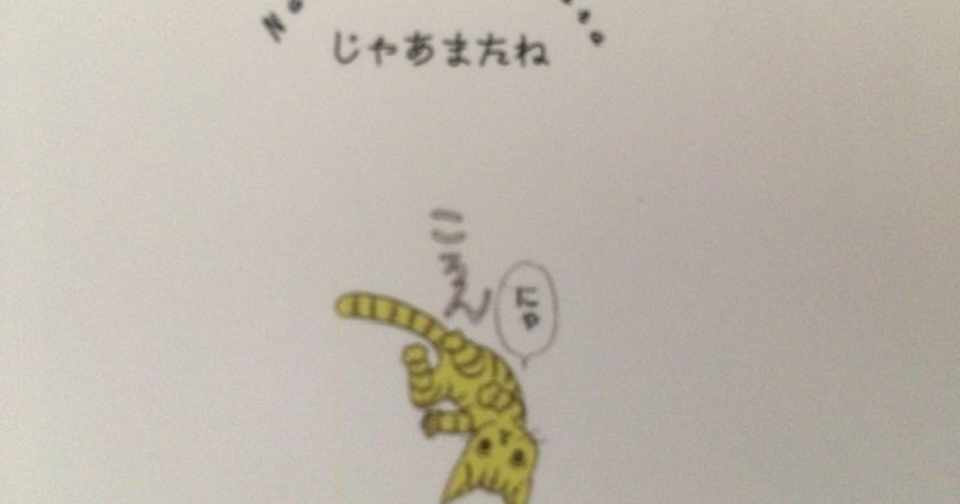 じゃあまたね
ころん
にゃ